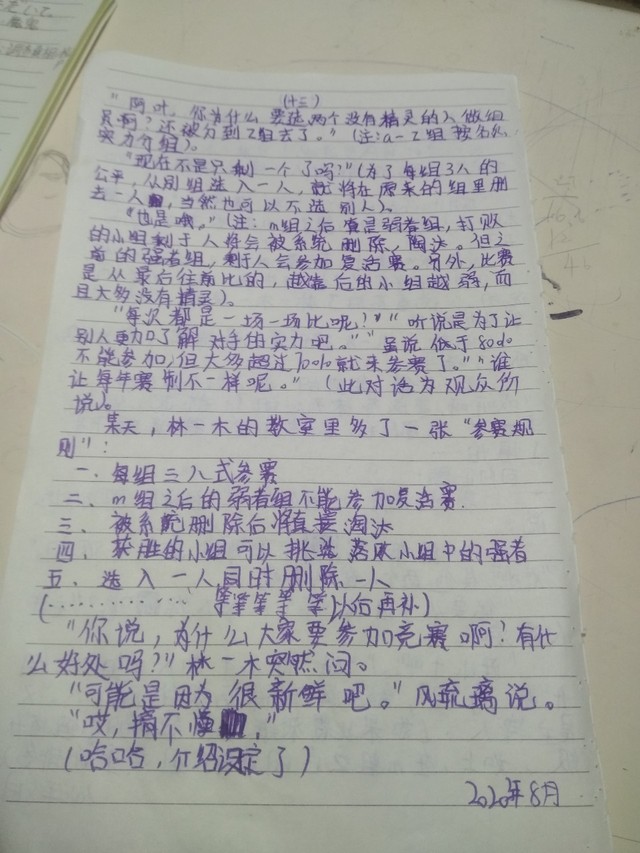 （十三）
“阿叶，你为什么要选两个没有精灵的人做组
员啊？还被分到Z组去了。”（注：a－z组按名次
实力分组）。
“现在不是只剩一个了吗？”（为了每组3人的
公平，从别组选入一人，就将在原来的组里删
去一人，当然也可以不选别人）。
“也是哦。”（注：m组之后算是弱者组，打败
的小组剩于人将会被系统删除，陶汰。但之
前的强者组，剩于人会参加复活赛。另外，比赛
是从最后往前比的，越靠后的小组越弱，而
且大多没有精灵）。
“每次都是一场一场比呢？”“听说是为了让
别人更加了解对手的实力吧。”“虽说低于80%
不能参加，但大多超过70%就来参赛了。”“谁
让每年赛制不一样呢。”（此对话为观众所
说）。
某天，林一木的教室里多了一张“参赛规
则”：
一、每组三人式参赛
二、m组之后的弱者组不能参加复活赛．
三、被系统删除后将直接淘汰
四、获胜的小组可以挑选落败小组中的强者
五、选入一人，同时删除一人
（………………等等等等等以后再补）
“你说，为什么大家要参加竞赛啊？有什
么好处吗？”林一木突然问。
“可能是因为很新鲜吧。”风琉璃说。
“哎，搞不懂。”
（哈哈，介绍设定了）
2020年8月